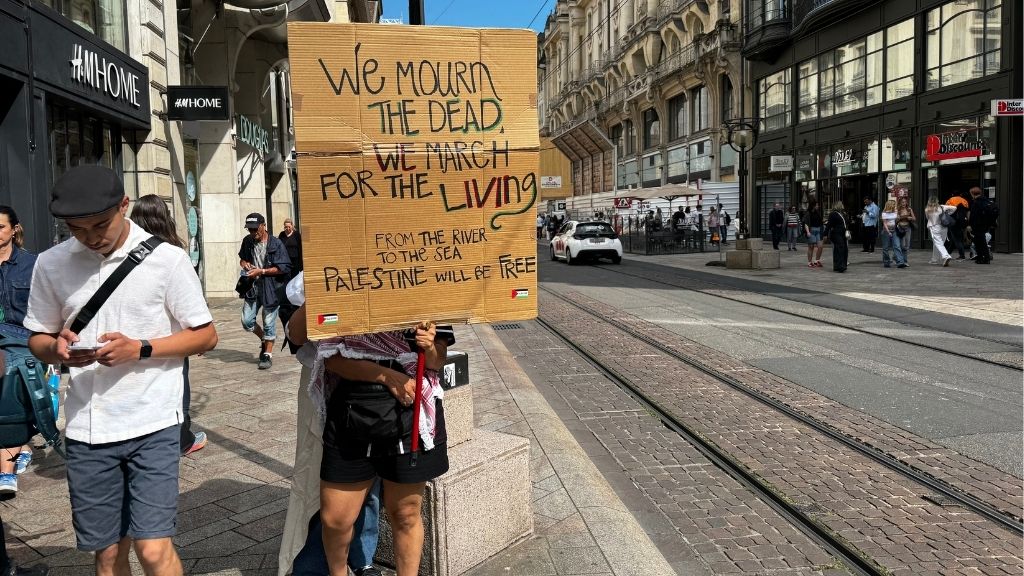 H&M HOME
H&M HOME
DOUGLAS
WE MOURN
THE DEAD.
WE MARCH
FOR THE LIVING
FROM THE RIVER
TO THE SEA
PALESTINE WILL BE FREE
Inter
Discount